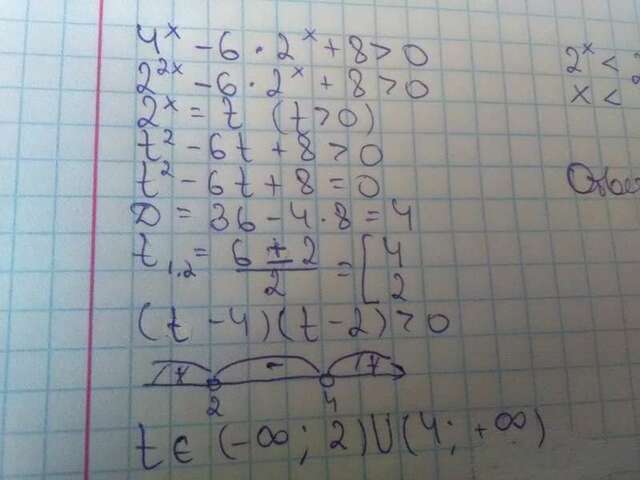 4^x - 6 · 2^x + 8 > 0
2^2x - 6 · 2^x + 8 > 0
2^x = t (t > 0)
t² - 6t + 8 > 0
t² - 6t + 8 = 0
D = 36 - 4 · 8 = 4
t₁.₂ = (6 ± 2)/2 = [4 2
(t - 4)(t - 2) > 0
+ - +
2 4
t ∈ (-∞; 2)∪(4; +∞)
2^x <
x <